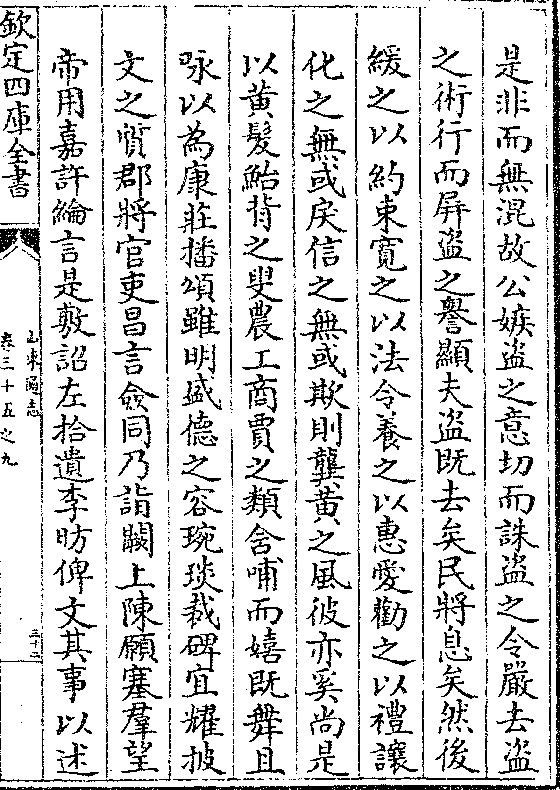 是非而無混故公嫉盜之意切而誅盜之令嚴去盜
之術行而屏盜之譽顯夫盜既去矣民將息矣然後
緩之以約束寛之以法令養之以惠愛勸之以禮讓
化之無或戾信之無或欺則龔黄之風彼亦奚尚是
以黄髮鮐背之叟農工商賈之類含哺而嬉既舞且
咏以為康莊播頌雖明盛德之容琬琰裁碑宜耀披
文之質郡將官吏昌言僉同乃詣闕上陳願塞羣望
帝用嘉許綸言是敷詔左拾遺李昉俾文其事以述
欽定四庫全書
山東通志
卷三十五之九
三十二